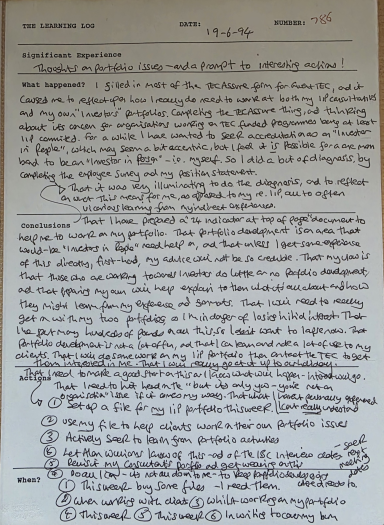 THE LEARNING LOG DATE: 19-6-94 NUMBER: 786
Significant Experience
Thoughts on portfolio issues - and a prompt to interesting actions!
What happened? I filled in most of the TECAssure form for TEC, and it
caused me to reflect upon how I really do need to work at both my IIP consultancies
and my own "Investors" portfolios. Completing the TECAssure thing, and thinking
about its concern for organisations working on TEC funded programmes being at least
IIP committed. For a while I have wanted to seek accreditation as an "Investor
in People", which may seem a bit eccentric, but I feel it is possible for a one man
band to be an "Investor in Person" - i.e. myself. So I did a bit of diagnosis, by
completing the employee survey and my position statement.
That it was very illuminating to do the diagnosis, and to reflect
on what this means for me, as opposed to my re. IIP, all to often
vicarious learning from my indirect experience.
That I have prepared a "24 indicator at top of page" document to
Conclusions
help me to work on my portfolio. That portfolio development is an area that
would-be "Investors in People" need help on, and that unless I get some experience
of this directly, first-hand, my advice will not be so credible. That my view is
that those who are working towards Investor do little on portfolio development,
and that preparing my own will help explain to them what it's all about and how
they might learn from my experience and . That I will need to really
get on with my two portfolios as I'm in danger of losing initial interest. That
I've put many hundreds of pounds on all this, so I don't want to lapse now. That
portfolio development is not a lot of fun, and that I can learn and note a lot of use to my
clients. That I will do some work on my IIP portfolio then contact the TEC to get
them interested in me. That I will really get it up to our holiday.
That I need to make a good start on this or I know what will happen -
Actions
That I need to not heed the "but it's only you - you're not an
organisation" issue if it comes my way. That what I haven't personally experienced
I can't really understand
① Set up a file for my IIP portfolio this week
② Use my file to help clients work on their own portfolio issues
③ Actively seek to learn from portfolio activities
④ Let Alan Williams know of this - and of the interview dates - seek
⑤ Revisit my Consultant's portfolio and get weaving on this
⑥ Do all I can - it's not all down to me - to keep portfolio
When?
① This week buy some files - I need them
② When working with clients ③ Whilst working on my portfolio
④ This week ⑤ This week ⑥ In writing to